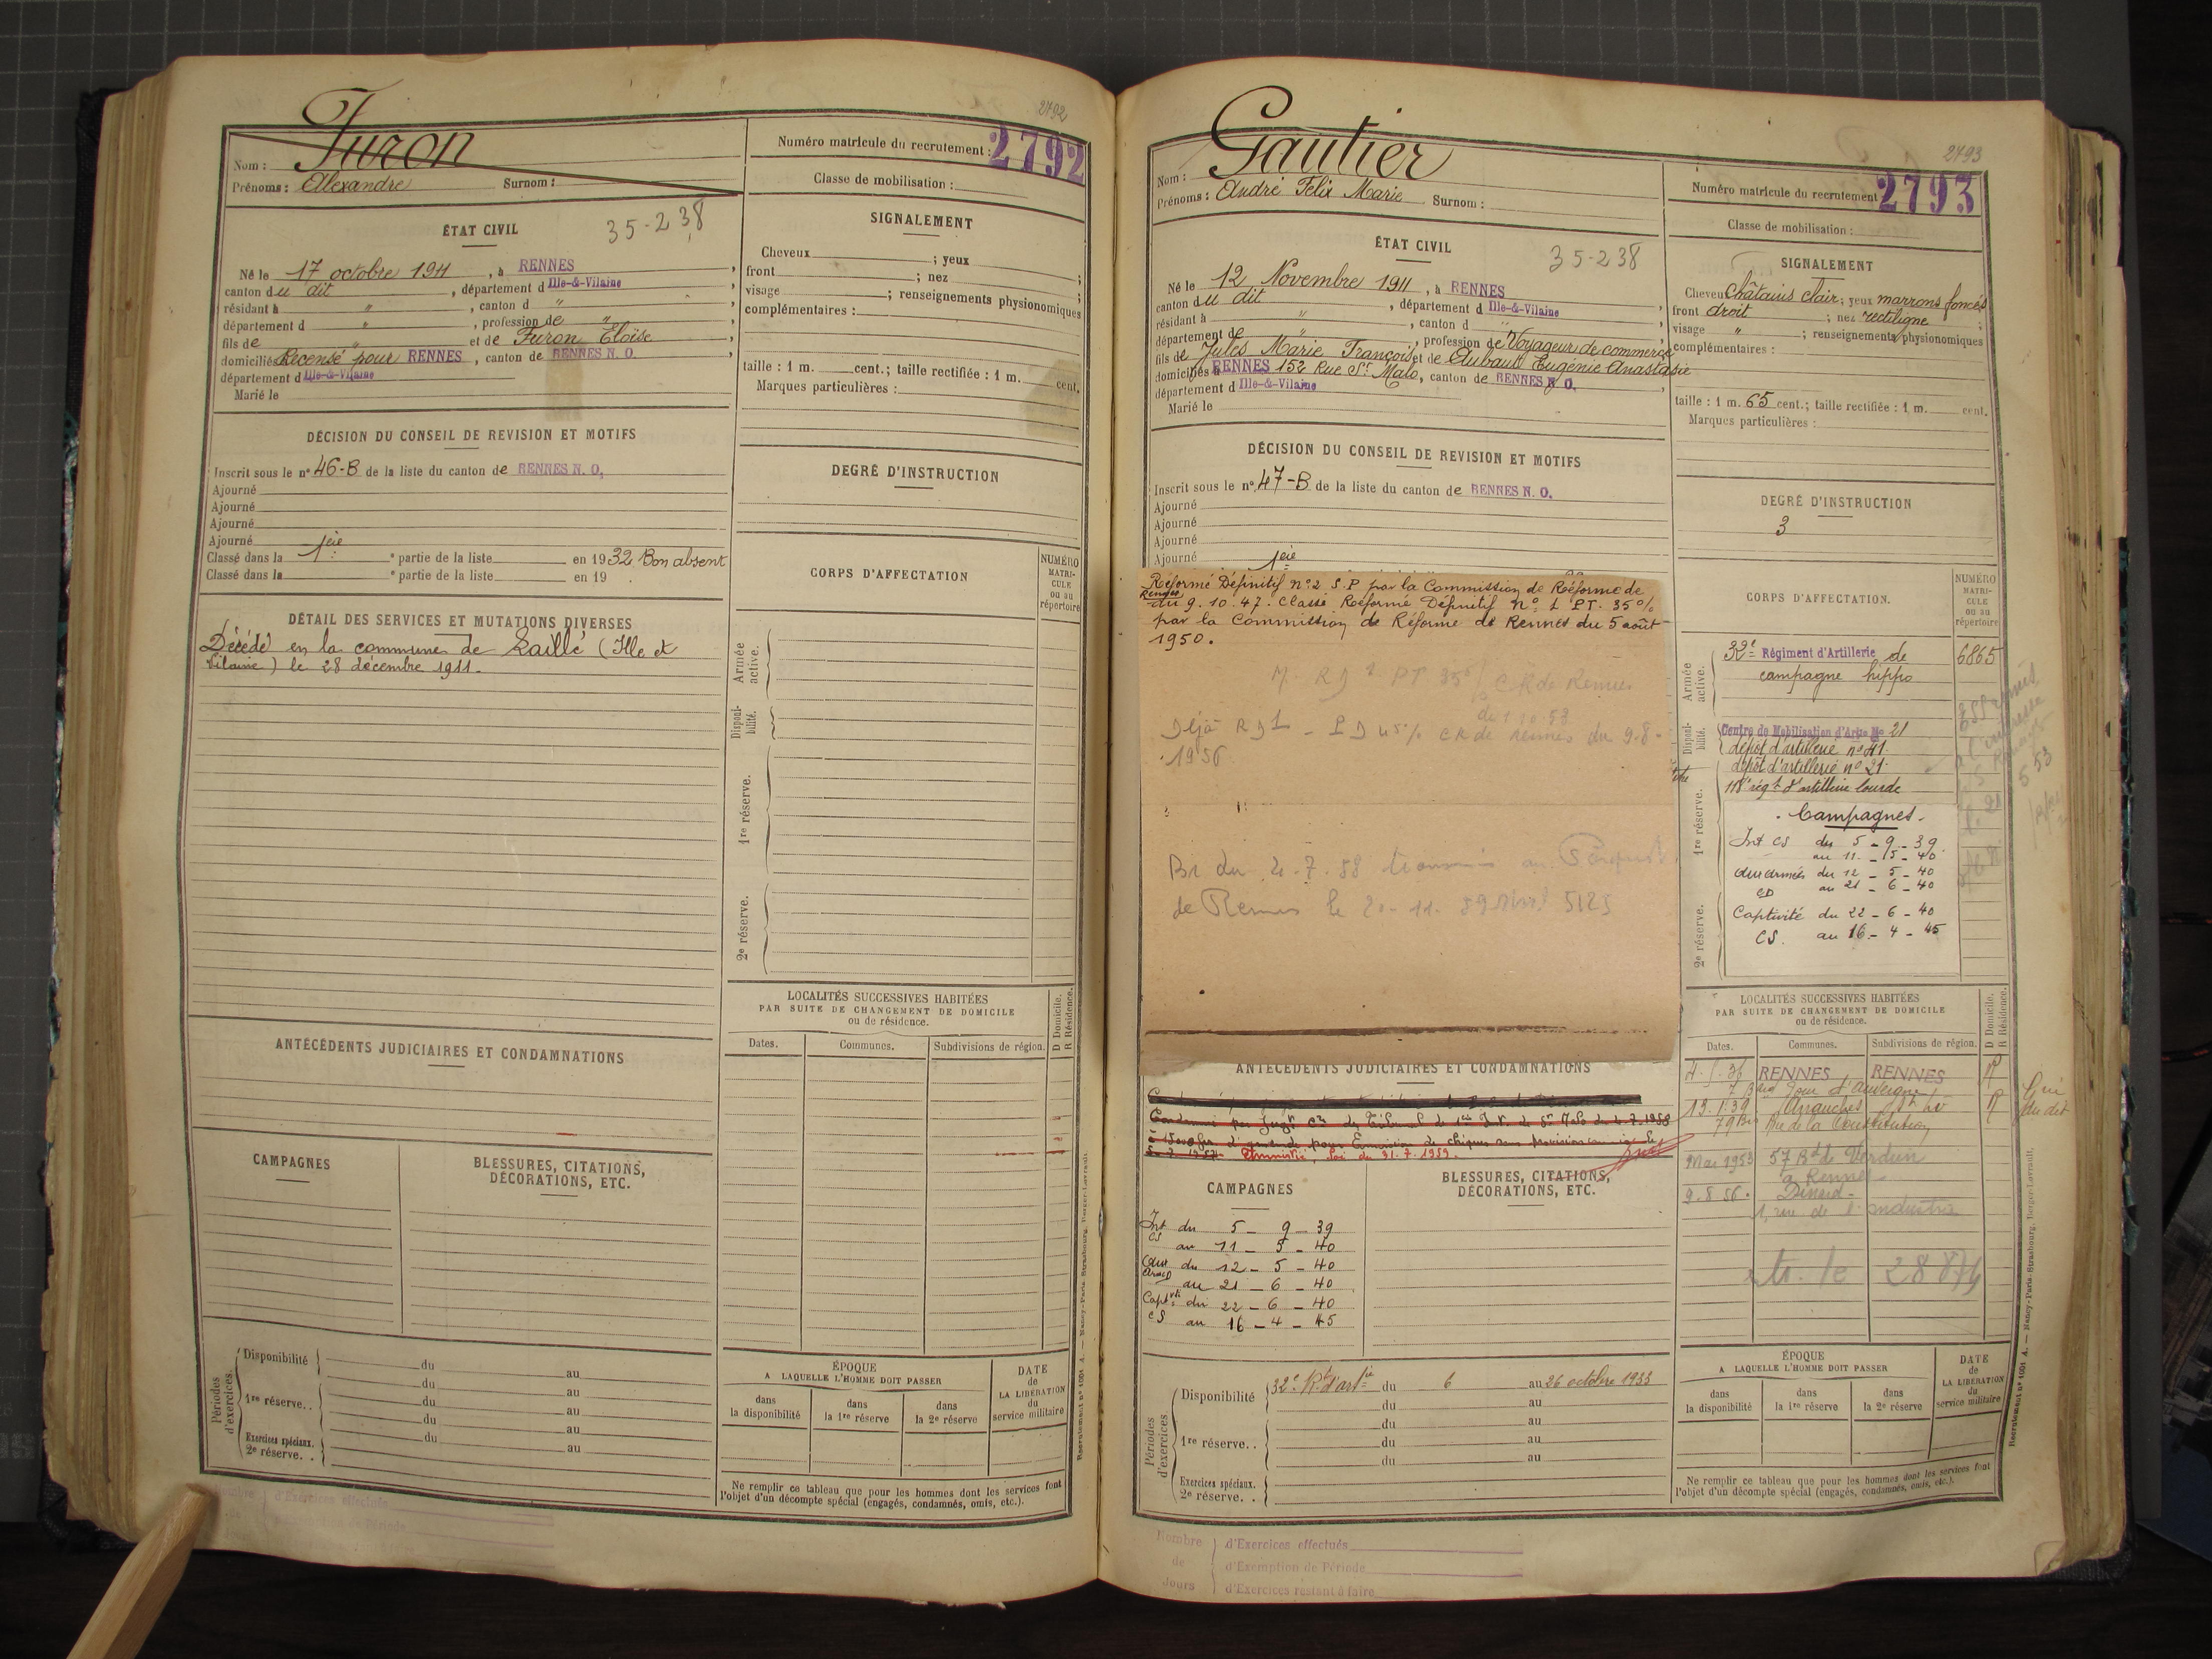 2792
Furon
Nom :
Numéro matricule du recrutement : 2792
Prénoms : Alexandre Surnom :
Classe de mobilisation :
ÉTAT CIVIL
35-238
Né le 17 octobre 1911, à RENNES,
canton du dit, département d Ille-&-Vilaine,
résidant à ", canton d ",
département d ", profession de "
fils de " et de Furon Eloïse
domiciliés Recensé pour RENNES, canton de RENNES N. O.,
département d Ille-&-Vilaine
Marié le
SIGNALEMENT
Cheveux ; yeux ;
front ; nez ;
visage ; renseignements physionomiques
complémentaires :
taille : 1 m. cent.; taille rectifiée : 1 m. cent.
Marques particulières :
DÉCISION DU CONSEIL DE REVISION ET MOTIFS
Inscrit sous le n° 46-B de la liste du canton de RENNES N. O.
Ajourné
Ajourné
Ajourné
Ajourné
Classé dans la 1ère e partie de la liste en 1932 Bon absent
Classé dans la e partie de la liste en 19 .
DEGRÉ D'INSTRUCTION
DÉTAIL DES SERVICES ET MUTATIONS DIVERSES
Décédé en la commune de Laillé (Ille et
Vilaine) le 28 décembre 1911.
CORPS D'AFFECTATION
NUMÉRO
MATRI-
CULE
ou au
répertoire
Armée
active.
Disponi-
bilité.
1re réserve.
2e réserve.
LOCALITÉS SUCCESSIVES HABITÉES
PAR SUITE DE CHANGEMENT DE DOMICILE
ou de résidence.
D Domicile.
R Résidence.
Dates. Communes. Subdivisions de région.
ANTÉCÉDENTS JUDICIAIRES ET CONDAMNATIONS
CAMPAGNES
BLESSURES, CITATIONS,
DÉCORATIONS, ETC.
Périodes
d'exercices.
Disponibilité du au
du au
1re réserve. . du au
du au
Exercices spéciaux. du au
2e réserve. .
ÉPOQUE
A LAQUELLE L'HOMME DOIT PASSER
dans
la disponibilité
dans
la 1re réserve
dans
la 2e réserve
DATE
de
LA LIBÉRATION
du
service militaire
Ne remplir ce tableau que pour les hommes dont les services font
l'objet d'un décompte spécial (engagés, condamnés, omis, etc.).
Recrutement n° 1001 A. — Nancy-Paris-Strasbourg, Berger-Levrault.
d'Exercices effectués
2793
Gautier
Nom :
Numéro matricule du recrutement 2793
Prénoms : André Felix Marie Surnom :
Classe de mobilisation :
ÉTAT CIVIL
35-238
Né le 12 Novembre 1911, à RENNES
canton du dit, département d Ille-&-Vilaine,
résidant à ", canton d "
département de ", profession de Voyageur de commerce
fils de Jules Marie François et de Aubault Eugénie Anastasie
domiciliés à RENNES 152 Rue St Malo, canton de RENNES N. O.
département d Ille-&-Vilaine
Marié le
SIGNALEMENT
Cheveux Châtains clair; yeux marrons foncés
front droit ; nez rectiligne ;
visage " ; renseignements physionomiques
complémentaires :
taille : 1 m. 65 cent.; taille rectifiée : 1 m. cent.
Marques particulières :
DÉCISION DU CONSEIL DE REVISION ET MOTIFS
Inscrit sous le n° 47-B de la liste du canton de RENNES N. O.
Ajourné
Ajourné
Ajourné
Ajourné
1ère
DEGRÉ D'INSTRUCTION
3
Réformé Définitif n°2 S.P par la Commission de Réforme de
Rennes
du 9.10.47. Classé Réformé Définitif n° 1 PT. 35%
par la Commission de Réforme de Rennes du 5 août
1950.
PT 35% CR de Rennes
Déjà RD1 - PD 45% CR de Rennes du 9.8.
1956
de Rennes le
CORPS D'AFFECTATION.
NUMÉRO
MATRI-
CULE
ou au
répertoire
Armée
active.
32e Régiment d'Artillerie de 6865
campagne hippo
Disponi-
bilité.
Centre de Mobilisation d'Artie No 21
dépôt d'artillerie n° 41.
dépôt d'artillerie n° 21.
118e régt d'artillerie lourde
1re réserve.
2e réserve.
. Campagnes -
Int CS du 5 - 9 - 39
au 11 - 5 - 40
aux armées du 12 - 5 - 40
CD au 21 - 6 - 40
Captivité du 22 - 6 - 40
CS. au 16 - 4 - 45
LOCALITÉS SUCCESSIVES HABITÉES
PAR SUITE DE CHANGEMENT DE DOMICILE
ou de résidence.
D Domicile.
R Résidence.
Dates. Communes. Subdivisions de région.
RENNES RENNES R
7 Bard d'Auvergne
19.1.39 Avranches St Lô R
79 bis Rue de la Constitution
Mai 1953 57 Bd de Verdun
à Rennes
9.8.56. Dinard -
1, rue de l'industrie
ANTÉCÉDENTS JUDICIAIRES ET CONDAMNATIONS
Amnistié, Loi du 31.7.1959.
CAMPAGNES
BLESSURES, CITATIONS,
DÉCORATIONS, ETC.
Int du 5 - 9 - 39
CS au 11 - 5 - 40
aux du 12 - 5 - 40
au 21 - 6 - 40
Captvté du 22 - 6 - 40
CS au 16 - 4 - 45
Périodes
d'exercices
Disponibilité 32e Rt d'artie du 6 au 26 octobre 1933
du au
1re réserve. . du au
du au
du au
Exercices spéciaux.
2e réserve. .
ÉPOQUE
A LAQUELLE L'HOMME DOIT PASSER
dans
la disponibilité
dans
la 1re réserve
dans
la 2e réserve
DATE
de
LA LIBÉRATION
du
service militaire
Ne remplir ce tableau que pour les hommes dont les services font
l'objet d'un décompte spécial (engagés, condamnés, omis, etc.).
Recrutement n° 1001 A. — Nancy-Paris-Strasbourg, Berger-Levrault.
Nombre
de
Jours
d'Exercices effectués
d'Exemption de Période
d'Exercices restant à faire